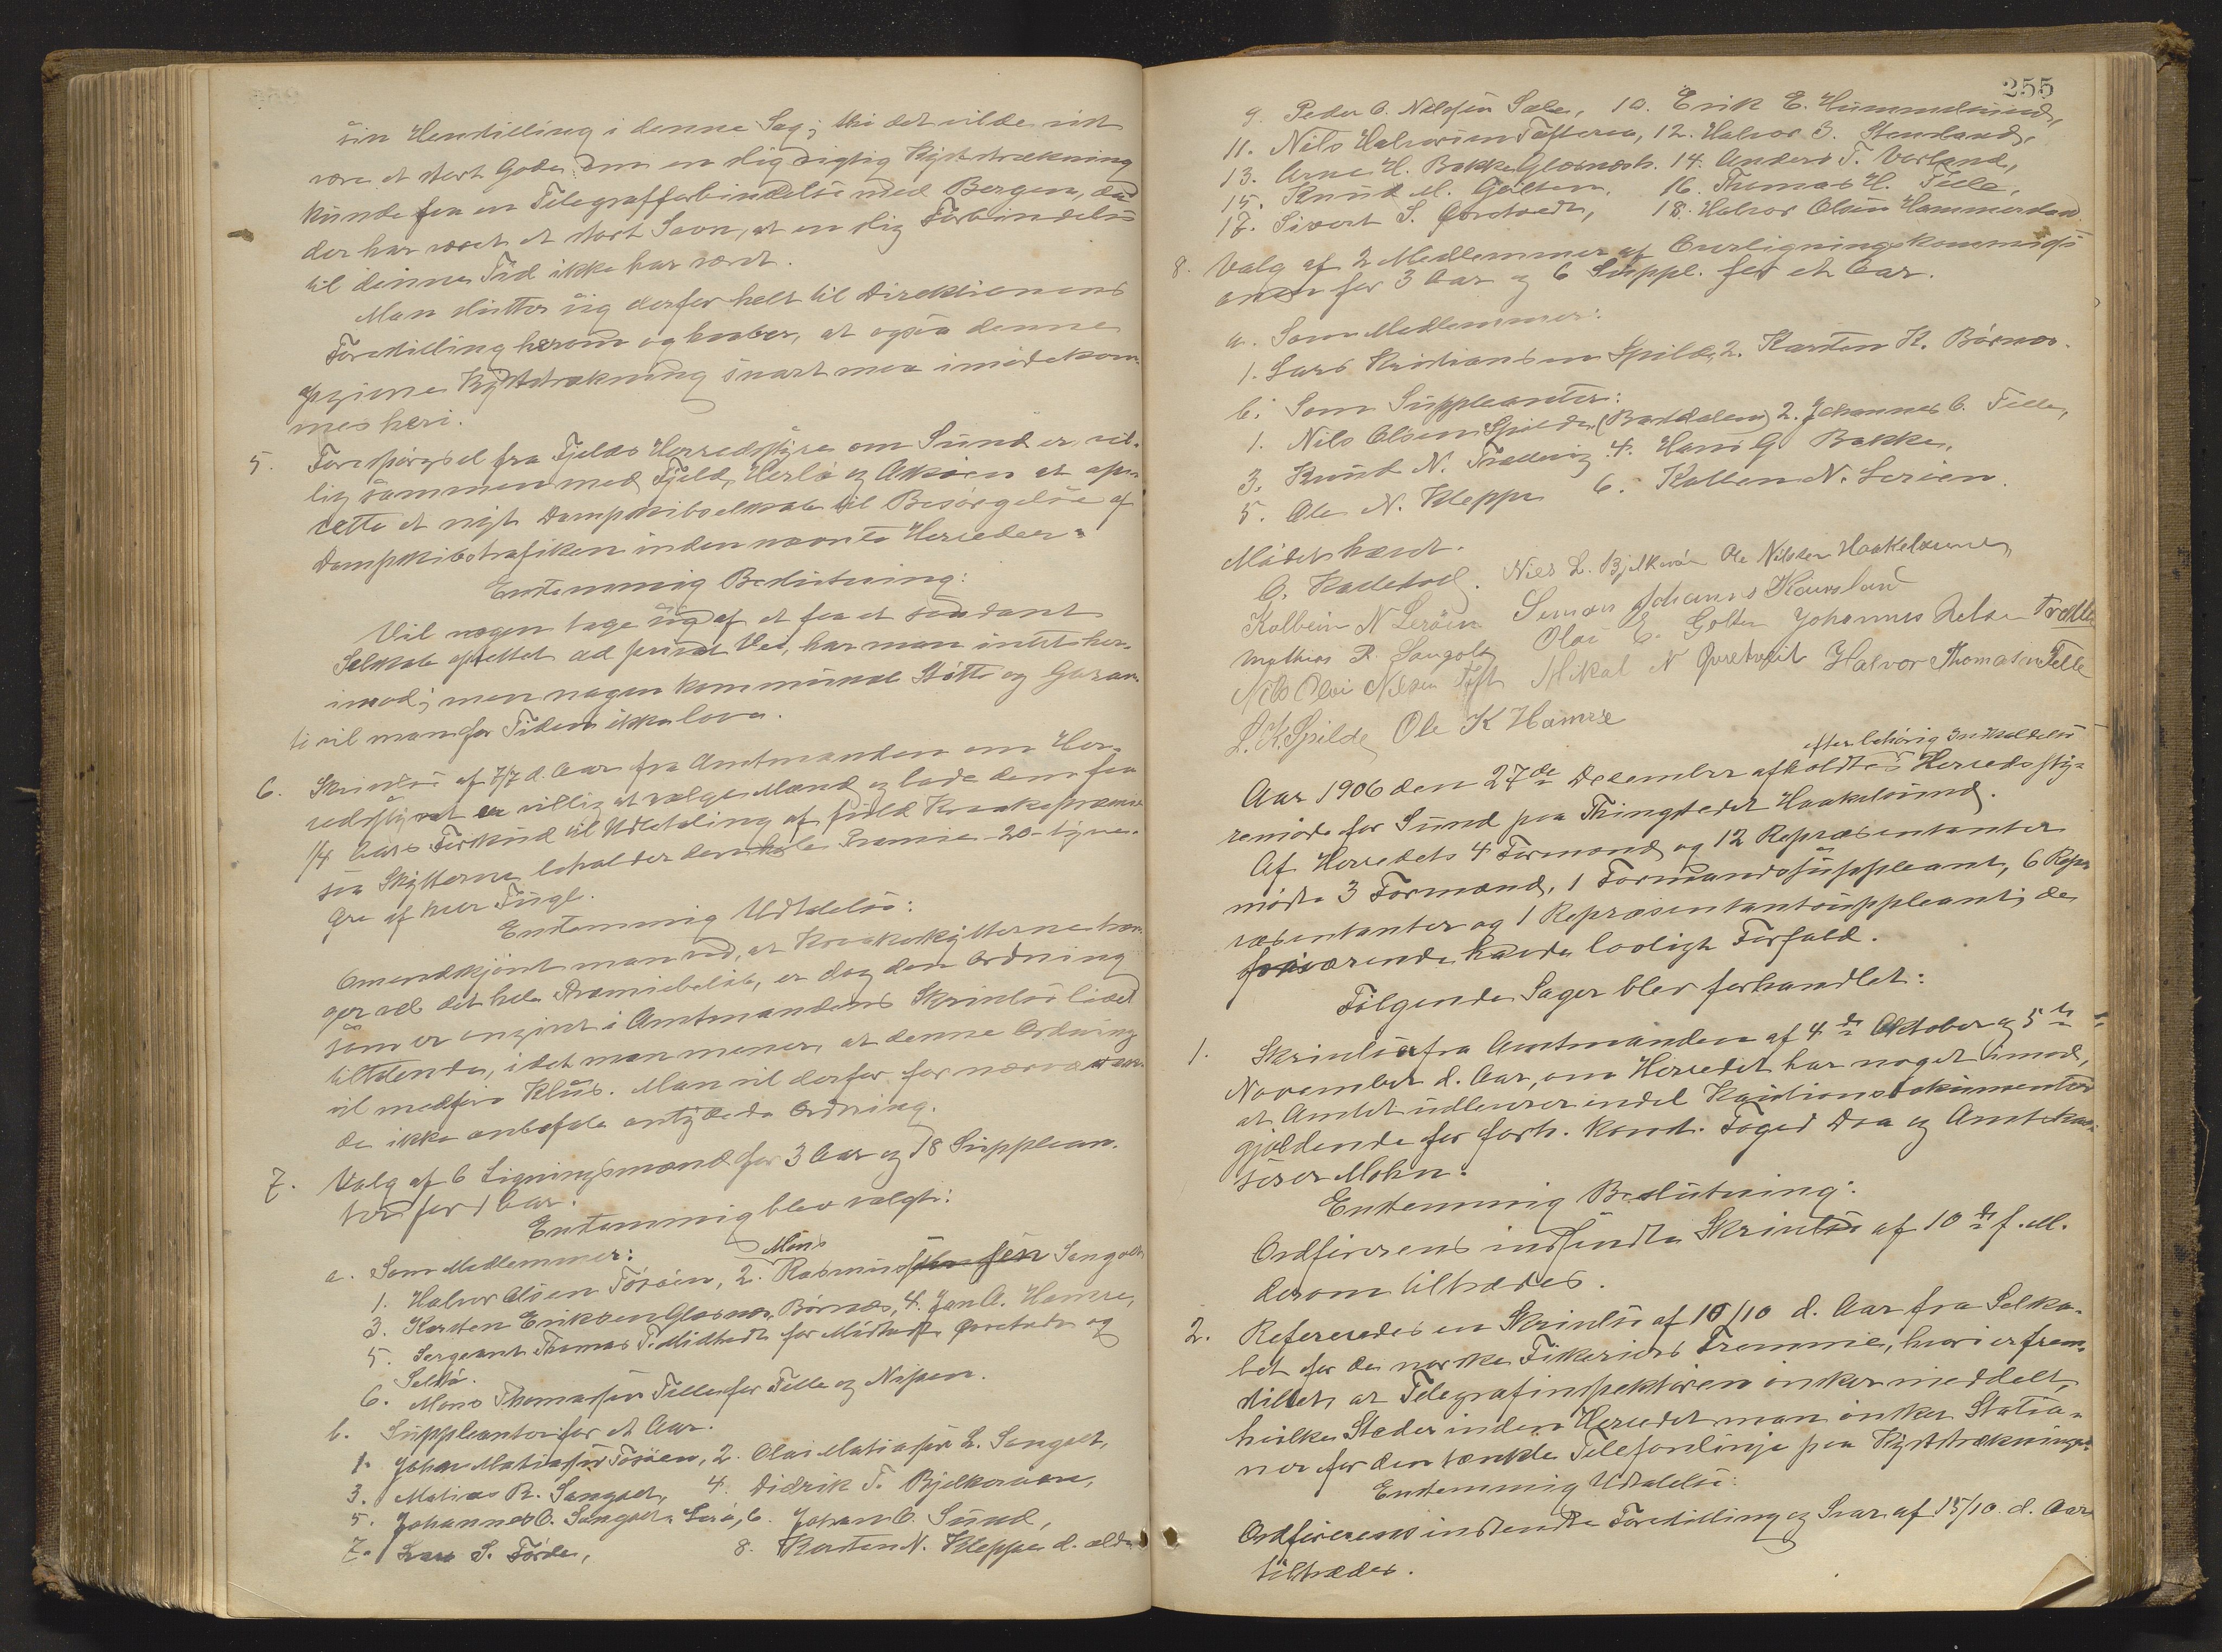 sin Henstilling i denne Sag; thi det vilde vist
være et stort Gode, om en slig vigtig Kyststrækning
kunde faa en Telegrafforbindelse med Bergen, da
der har været et stort Savn, at en slig Forbindelse
til denne Tid ikke har været.
Man slutter sig derfor helt til Direktionens
Forestilling herom og haaber, at ogsaa denne
Kyststrækning snart maa imødekom-
mes heri.
5. Forespørgsel fra Fjelds Herredsstyre om Sund er vil-
lig sammen med Fjeld, Herlø og Askøen at op-
rette et nyt Dampskibsselskab til Besørgelse af
Dampskibstrafiken inden nævnte Herreder.
Enstemmig Beslutning:
Vil nogen tage sig af at faa et saadant
Selskab oprettet ad privat Vei, har man intet her-
imod; men nogen kommunal Støtte og Garan-
ti vil man for Tiden ikke love.
6. Skrivelse af 7/7 d. Aar fra Amtmanden om Her-
redsstyret er villig at vælge Mænd og lade dem faa
1/4 Aars Forskud til Udbetaling af fuld Kraakepræmie
saa Skytterne beholder den hele Præmie -20- tyve
Øre af hver Fugl.
Enstemmig Udtalelse:
Omendskjønt man ved, at Kraakeskytterne træn-
ger vel det hele Præmiebeløb, er dog den Ordning
som er angivet i Amtmandens Skrivelse lidet
tiltalende, idet man mener, at denne Ordning
vil medføre Kluss. Man vil derfor for nærværen-
de ikke anbefale antydede Ordning.
7. Valg af 6 Ligningsmænd for 3 Aar og 18 Supplean-
ter for 1 Aar.
Enstemmig blev valgt:
a. Som Medlemmer: Mons
1. Halvor Olsen Tøsøen, 2. Rasmussen Sangolt
3. Karsten Eriksen Glesnæs, Børnæs, 4. Jan A. Hamre,
5. Sergeant Thomas T. Midttvedt for Midttvedt, Øvretvedt og
Selstø.
6. Mons Thomassen Telle for Telle og Nipen.
b. Suppleanter for et Aar:
1. Johan Matiassen Tøsøen, 2. Olai Matiassen L. Sangolt,
3. Matias R. Sangolt, 4. Didrik T. Bjelkerøen,
5. Johannes O. Sangolt, Lerø, 6. Johan O. Sund,
7. Lars S. Førde, 8. Karsten N. Kleppe d. ældre
255
9. Peder O. Nilssen Sæle, 10. Erik E. Hummelsund,
11. Nils Halvorsen Tofterøen, 12. Halvor J. Stensland,
13. Arne H. Bakke Glesnæsh. 14. Anders T. Vorland,
15. Knud M. Golten, 16. Thomas H. Telle,
17. Sivert S. Øvretvedt, 18. Halvor Olsen Hammersland
8. Valg af 2 Medlemmer af Overligningskommissi
onen for 3 Aar og 6 Suppl. for et Aar.
a. Som Medlemmer:
1. Lars Kristiansen Spilde, 2. Karsten K. Børnæs.
b. Som Suppleanter:
1. Nils Olsen Spilde (Barddalen) 2. Johannes O. Telle,
3. Knud N. Trællevig 4. Hans G. Bakke,
5. Ole N. Kleppe 6. Kolben N. Lerøen.
Mødet hævet.
O. Kallestad. Nils L. Bjelkerøe Ole Nilsen Haakelsund
Kolbein N Lerøen Simon Johannes Kausland
Mathias R. Sangolt Olai E. Golten Johannes Nelsen Trælle
Nils Olai Nilsen Toft Mikal N Øvretveit Halvor Thomassen Telle
L. K. Spilde Ole K Hamre
efter behørig Indkaldelse
Aar 1906 den 27de December afholdtes Herredssty-
remøde for Sund paa Thingstedet Haakelsund.
Af Herredets 4 Formænd og 12 Repræsentanter
mødte 3 Formænd, 1 Formandssuppleant, 6 Rep-
ræsentanter og 1 Repræsentantsuppleant; de
fraværende havde lovligt Forfald.
Følgende Sager blev forhandlet:
1. Skrivelse fra Amtmanden af 4de Oktober og 5te
November d. Aar, om Herredet har noget imod,
at Amtet udleverer endel Kautionsdokumenter
gjældende for forh. konst. Foged Daa og Amtskas-
serer Mohn.
Enstemmig Beslutning:
Ordførerens indsendte Skrivelse af 10de f. M.
derom tiltrædes.
2. Refereredes en Skrivelse af 10/10 d. Aar fra Selska-
bet for de norske Fiskeriers Fremme, hvori er frem-
stillet, at Telegrafinspektøren ønsker meddelt,
hvilke Steder inden Herredet man ønsker Statio-
ner for den tænkte Telefonlinje paa Kyststrækningen.
Enstemmig Udtalelse:
Ordførerens indsendte Forestilling og Svar af 15/10 d. Aar
tiltrædes.